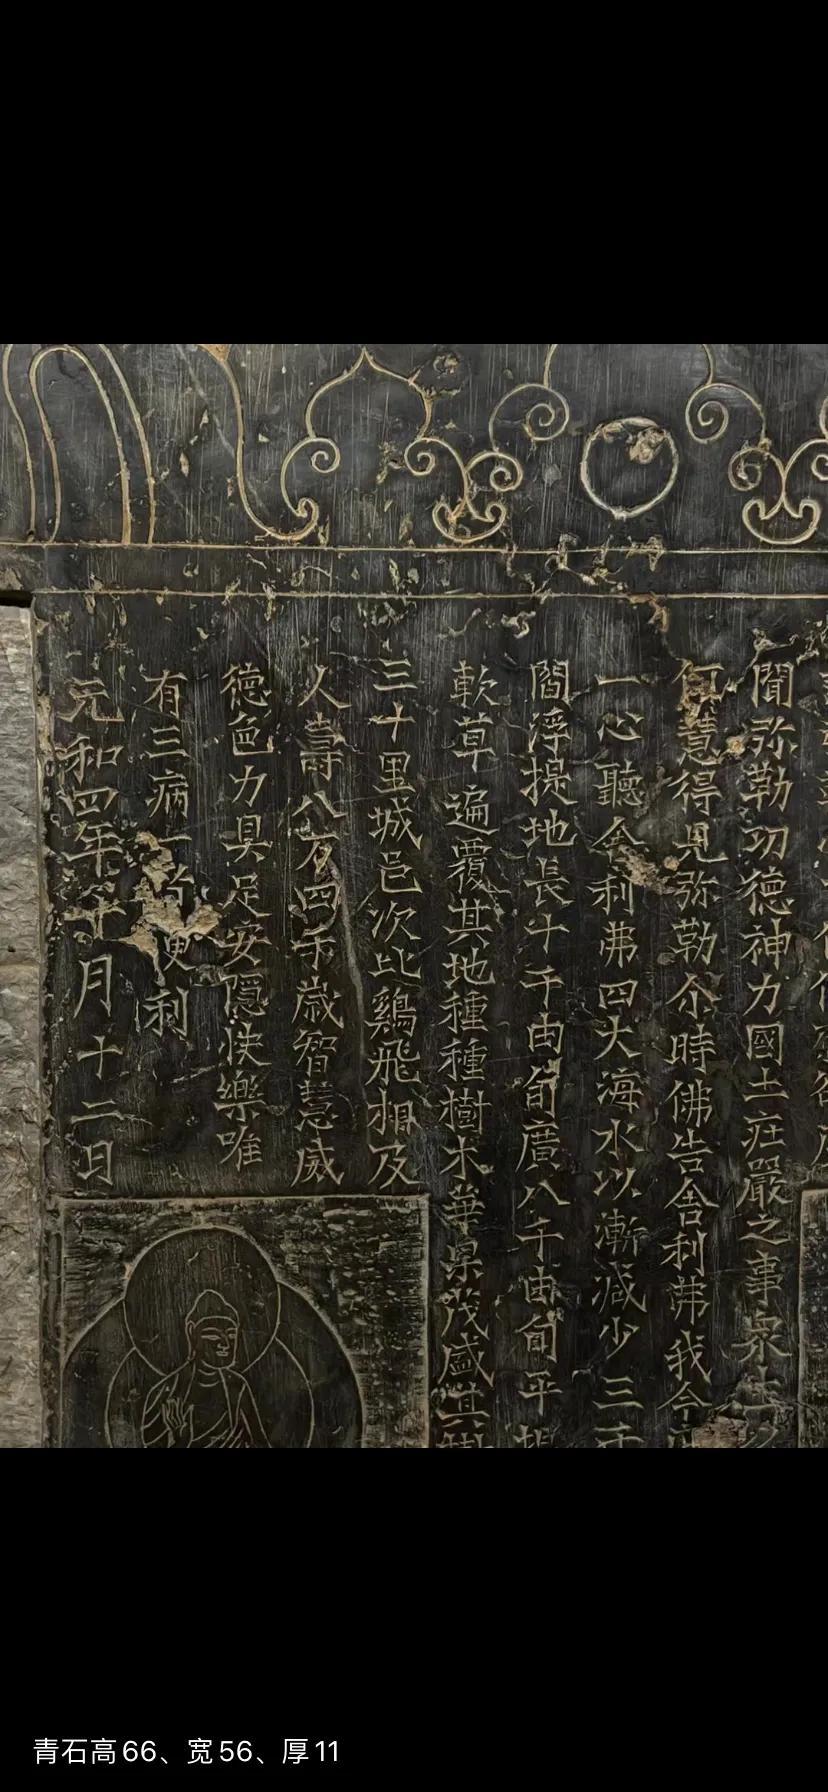 聞弥勒功德神力國土莊嚴之事衆生以
何慧得見弥勒尒時佛告舍利弗我今
一心聽舍利弗四大海水以漸減少三千
閻浮提地長十千由旬廣八千由旬平坦
軟草遍覆其地種種樹木華菓茂盛其樹
三十里城邑次比鷄飛相及
人壽八万四千歲智慧威
德色力具足安隱快樂唯
有三病一者便利
元和四年十月十二日
青石高66、宽56、厚11